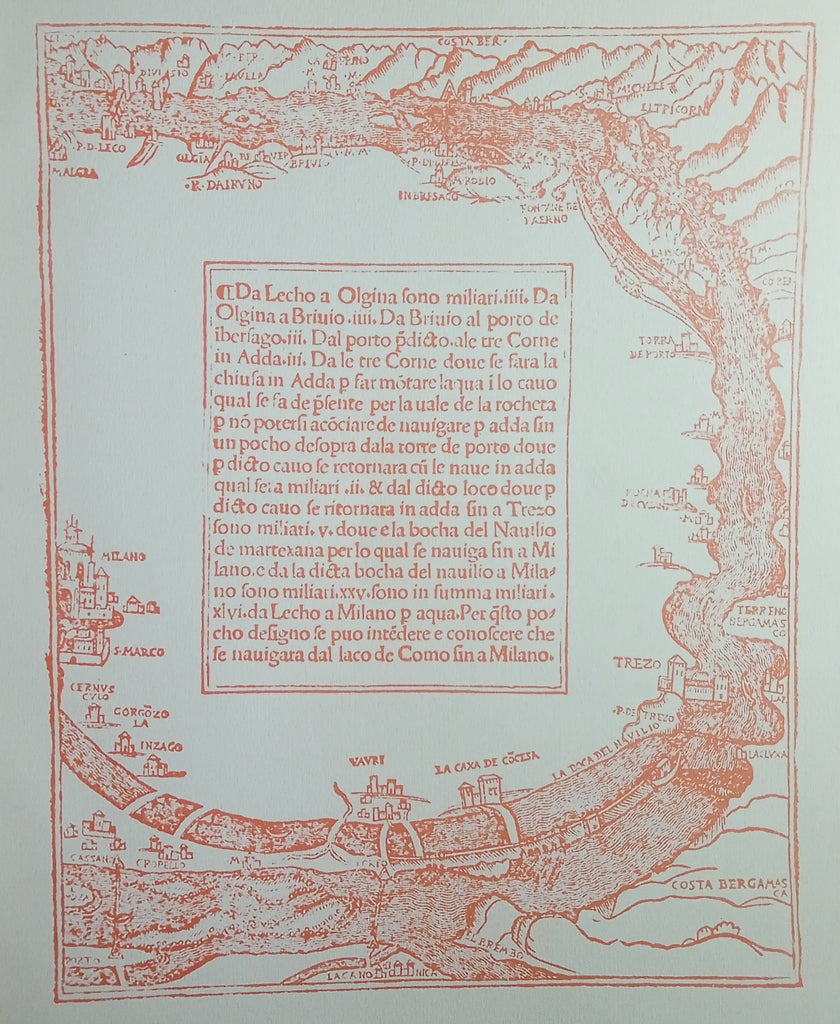 COSTA BER.
DIVIASIO
S. MICHELE
P.D.LECO
MALGRA
OLGIA
BRIVIO
.R.DAIRVNO
INBRESAGO
FONTANE DE
¶Da Lecho a Olgina sono miliari.iiii. Da
Olgina a Briuio .iiii. Da Briuio al porto de
ibersago.iii. Dal porto p̄dicto.ale tre Corne
in Adda.iii. Da le tre Corne doue se fara la
chiusa in Adda p far mōtare laqua ī lo cauo
qual se fa de p̄sente per la uale de la rocheta
p nō potersi acōciare de nauigare p adda sin
un pocho desopra dala torre de porto doue
p dicto cauo se retornara cū le naue in adda
qual sera miliari .ii. & dal dicto loco doue p
dicto cauo se ritornara in adda sin a Trezo
sono miliari. v. doue e la bocha del Nauilio
de martexana per lo qual se nauiga sin a Mi
lano.e da la dicta bocha del nauilio a Mila-
no sono miliari.xxv.sono in summa miliari.
xlvi.da Lecho a Milano p aqua.Per q̄sto po-
cho designo se puo intēdere e conoscere che
se nauigara dal laco de Como sin a Milano.
TORRA
DE PORTO
MILANO
S.MARCO
TERRENO
BERGAMAS
CO
TREZO
.P.DE TREZO
CERNVS
CVLO
GORGŌZO
LA
INZAGO
VAVRI
LA CAXA DE CŌCESA
LA BOCA DEL NAVILIO
CASSANO
CROPELLO
COSTA BERGAMAS
CA
EL BREMBO
PORTO
LACANONICA